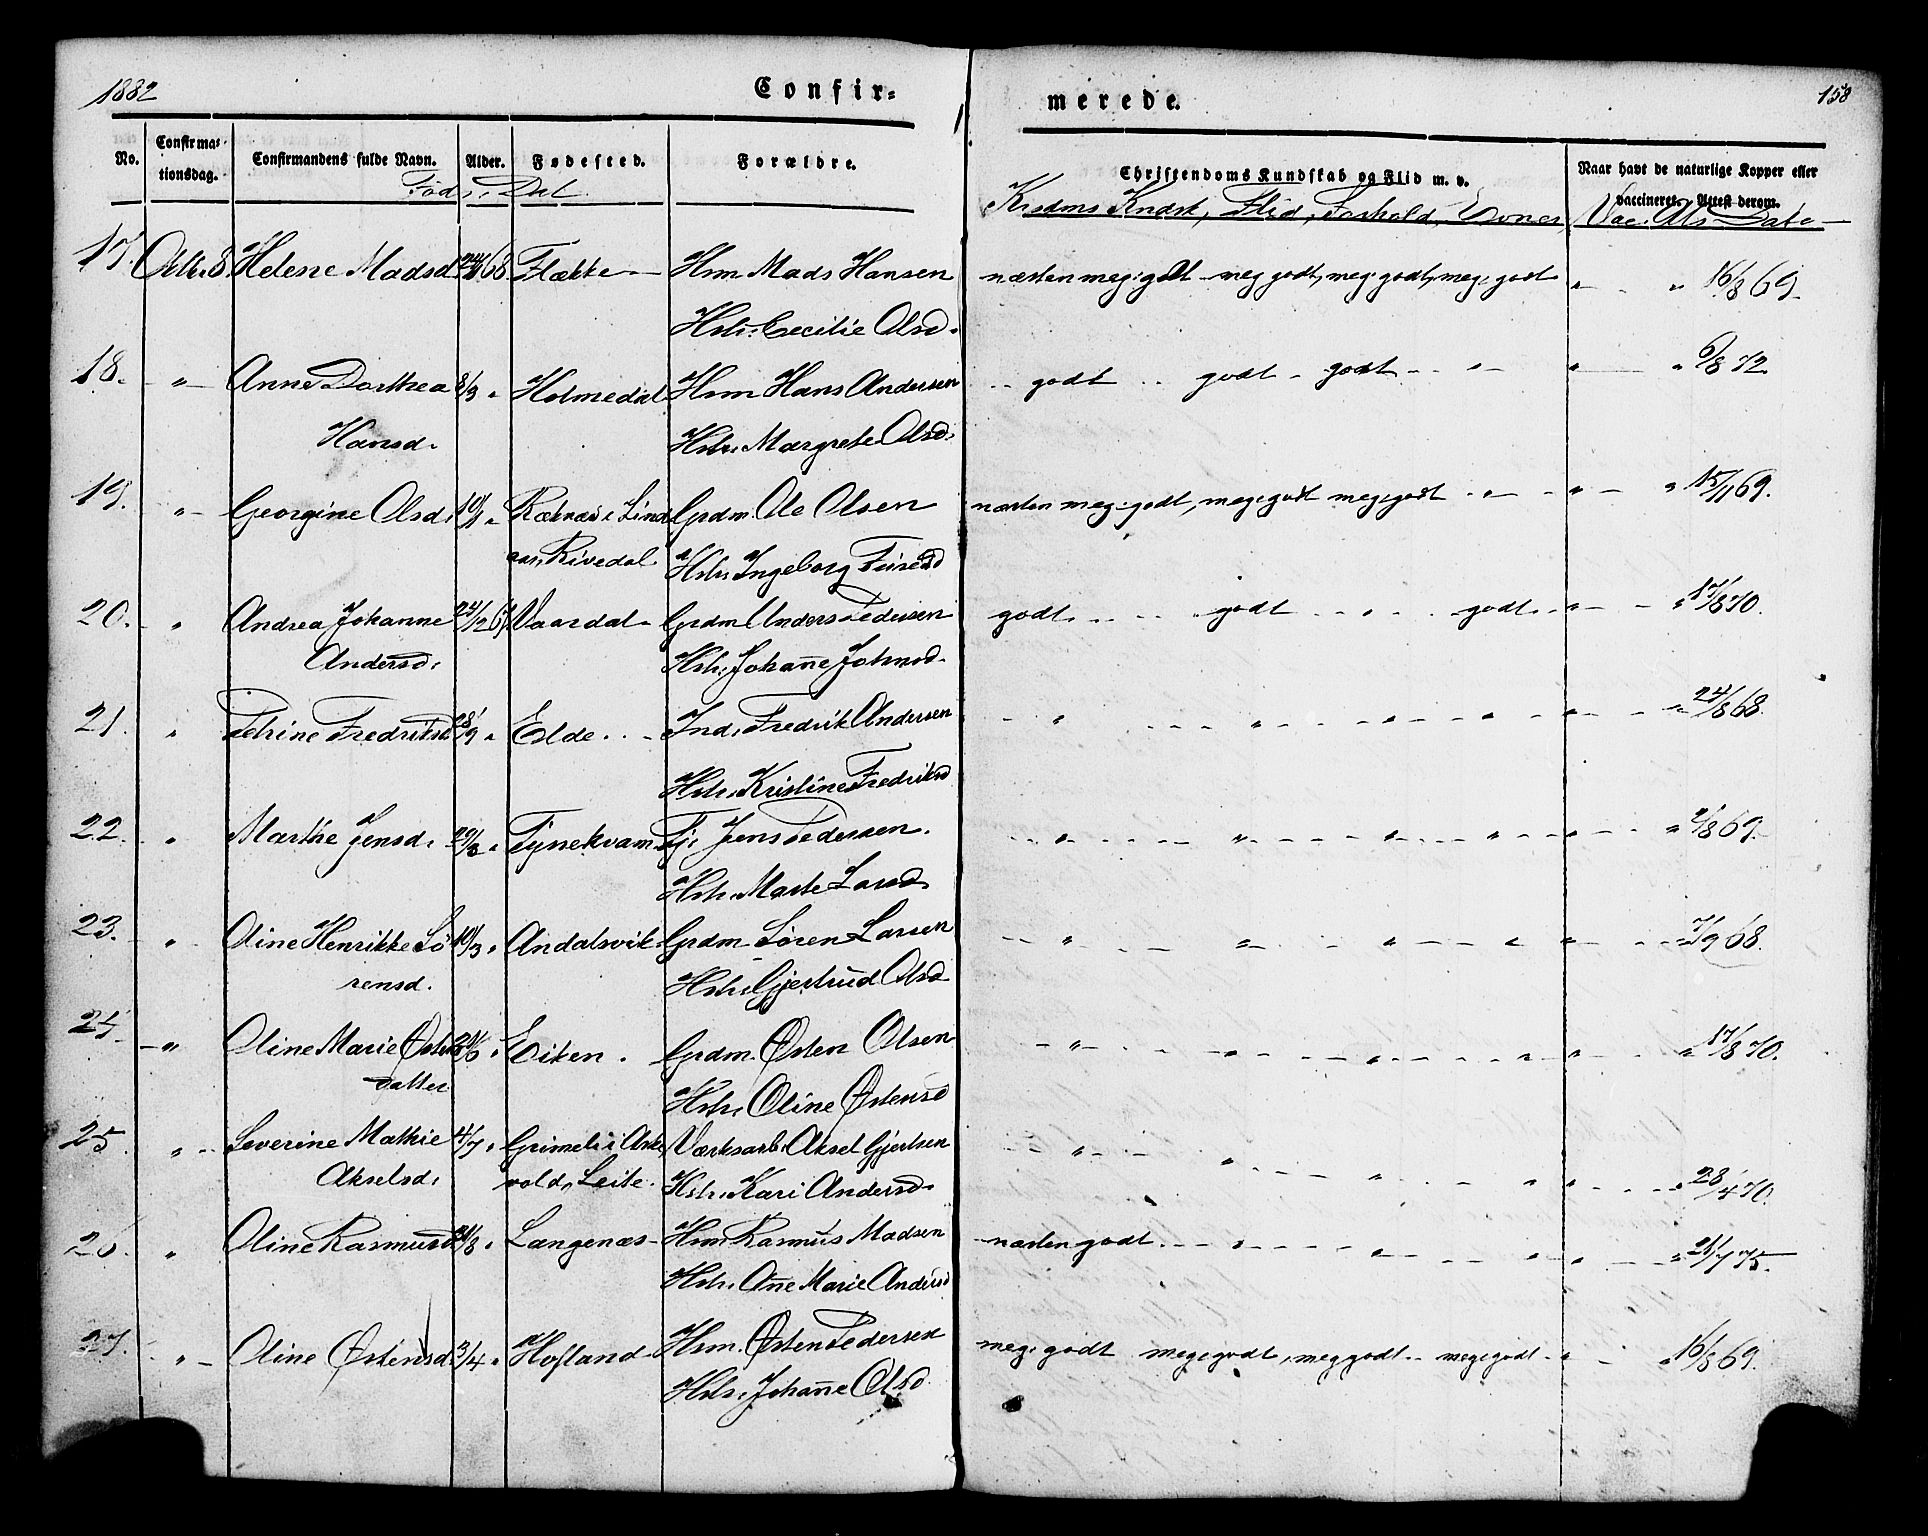 1882
Confir=
merede.
158
No.
Confirma=
tionsdag.
Confirmandens fulde Navn.
Alder.
Fødested.
Forældre.
Christendoms Kundskab og Flid m. v.
Naar havt de naturlige Kopper eller
vaccineret. Attest derom.
Føds. Dat
Krdms Kndsk, Flid, Forhold, Evner
Vac. Ats Dato
17. Octbr. 8. Helene Madsd 68. Flække Hsm Mads Hansen næsten meg. godt meg godt, meg godt, meg. godt " " 16/8 69.
Hstr. Cecilie Olsd.
18. " Anne Dorthea 8/3 " Holmedal Hsm Hans Andersen godt godt godt " " " 6/8 72
Hansd. Hstr. Margrete Olsd.
19. " Georgine Olsd. 10/1 " Gdm. Ole Olsen næsten meg. godt, meg. godt meg. godt " " " 15/11 69.
aas, Rivedal Hstr. Ingeborg
20. " Andrea Johanne 24/12 67 Vaardal Grdm. Anders Pedersen godt godt " godt " " 17/8 70.
Andersd. Hstr. Johanne Johnsd.
21. " Petrine Fredriksd 28/9 " Elde Ind. Fredrik Andersen " " " " " " 24/8 68.
Hstr. Kristine Fredriksd
22. " Marthe Jensd. " Tynekvam Tj. Jens Pedersen. " " " " " " 2/8 69.
Hstr. Marte Larsd
23. " Oline Henrikke Sö 10/3 " Andalsvik Grdm. Søren Larsen " " " " " " 7/9 68.
rensd. Hstr. Gjertrud Olsd
24. " Oline Marie Østens " Eiken. Grdm. Østen Olsen " " " " " " 17/8 70.
datter Hstr. Oline Østensd
25. " Severine Mathie 4/7 " Grimeli i Aske Værksarb. Aksel Gjertsen " " " " " " 28/4 70.
Akselsd. vold, Leite. Hstr. Kari Andersd.
26. " Oline Rasmusd 21/8 " Langenæs Hsm Rasmus Madsen næsten godt " " " " " 21/7 75.
Hstr. Anne Marie Andersd
27. " Oline Østensd 3/4 " Hofland Hsm. Østen Pedersen meg. godt meg. godt, meg godt meg. godt " " 16/8 69.
Hstr. Johanne Olsd